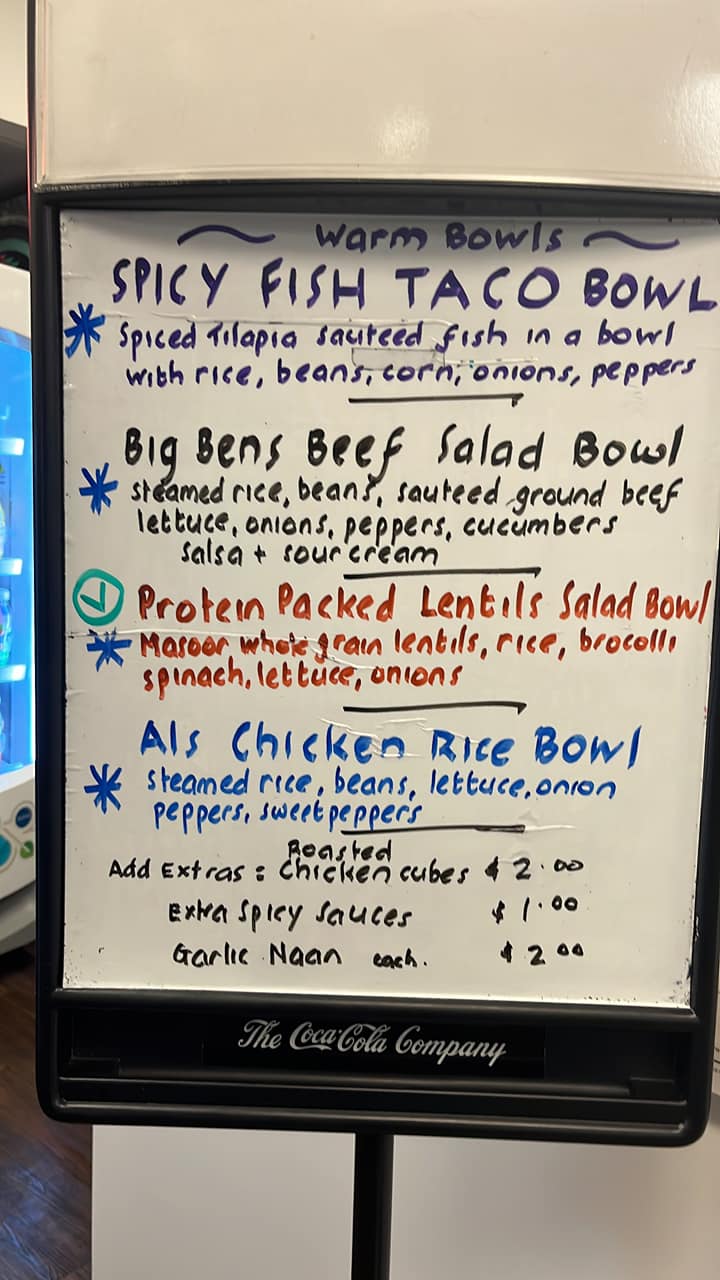 ~ Warm Bowls ~
SPICY FISH TACO BOWL
* Spiced Tilapia sauteed fish in a bowl
with rice, beans, corn, onions, peppers
Big Bens Beef Salad Bowl
* steamed rice, beans, sauteed ground beef
lettuce, onions, peppers, cucumbers
salsa + sour cream
Protein Packed Lentils Salad Bowl
* Masoor whole grain lentils, rice, brocolli
spinach, lettuce, onions
Als Chicken Rice Bowl
* steamed rice, beans, lettuce, onion
peppers, sweet peppers
Roasted
Add Extras : Chicken cubes $ 2.00
Extra Spicy Sauces $ 1.00
Garlic Naan each. $ 2 00
The Coca-Cola Company